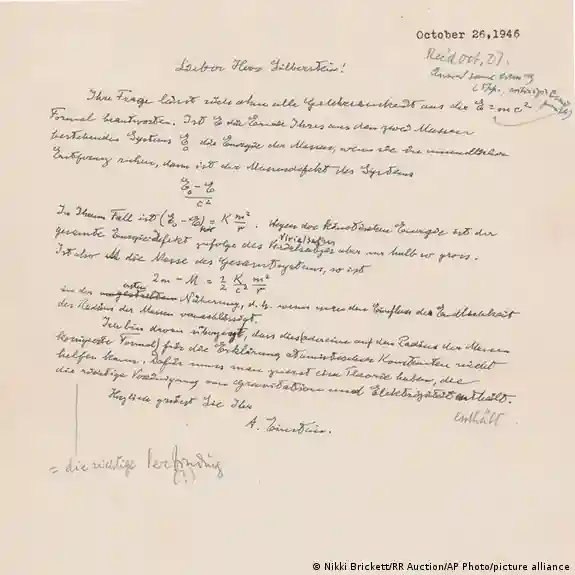 October 26, 1946
Rec'd oct. 27.
Lieber Herr Silberstein!
Ihre Frage lässt sich ohne alle Gelehrsamkeit aus der E = mc²
Formel beantworten. Ist E die Energie Ihres aus den zwei Massen
bestehenden Systems E₀ die Energie der Massen, wenn sie in unendlicher
Entfernung ruhen, dann ist der Massendefekt des Systems
E₀ - E
c²
In Ihrem Fall ist (E₀ - E)pot = K m²/r. Wegen der kinetischen Energie ist der
gesamte Energiedefekt zufolge des Virialsatzes aber nur halb so gross.
Ist also M die Masse des Gesamtsystems, so ist
2m - M = 1/2 K/c² m²/r
in der ersten Näherung, d.h. wenn man den Einfluss der Endlichkeit
des Radius der Massen vernachlässigt.
Ich bin davon überzeugt, dass dies (oder eine auf den Radius der Massen
Formel) für die Erklärung atomistischer Konstanten nicht
helfen kann. Dafür muss man zuerst eine Theorie haben, die
die richtige Vereinigung von Gravitation und Elektrizität enthält.
enthält
Herzlich grüsst Sie Ihr
A. Einstein.
= die richtige Verbindung
(?)
© Nikki Brickett/RR Auction/AP Photo/picture alliance